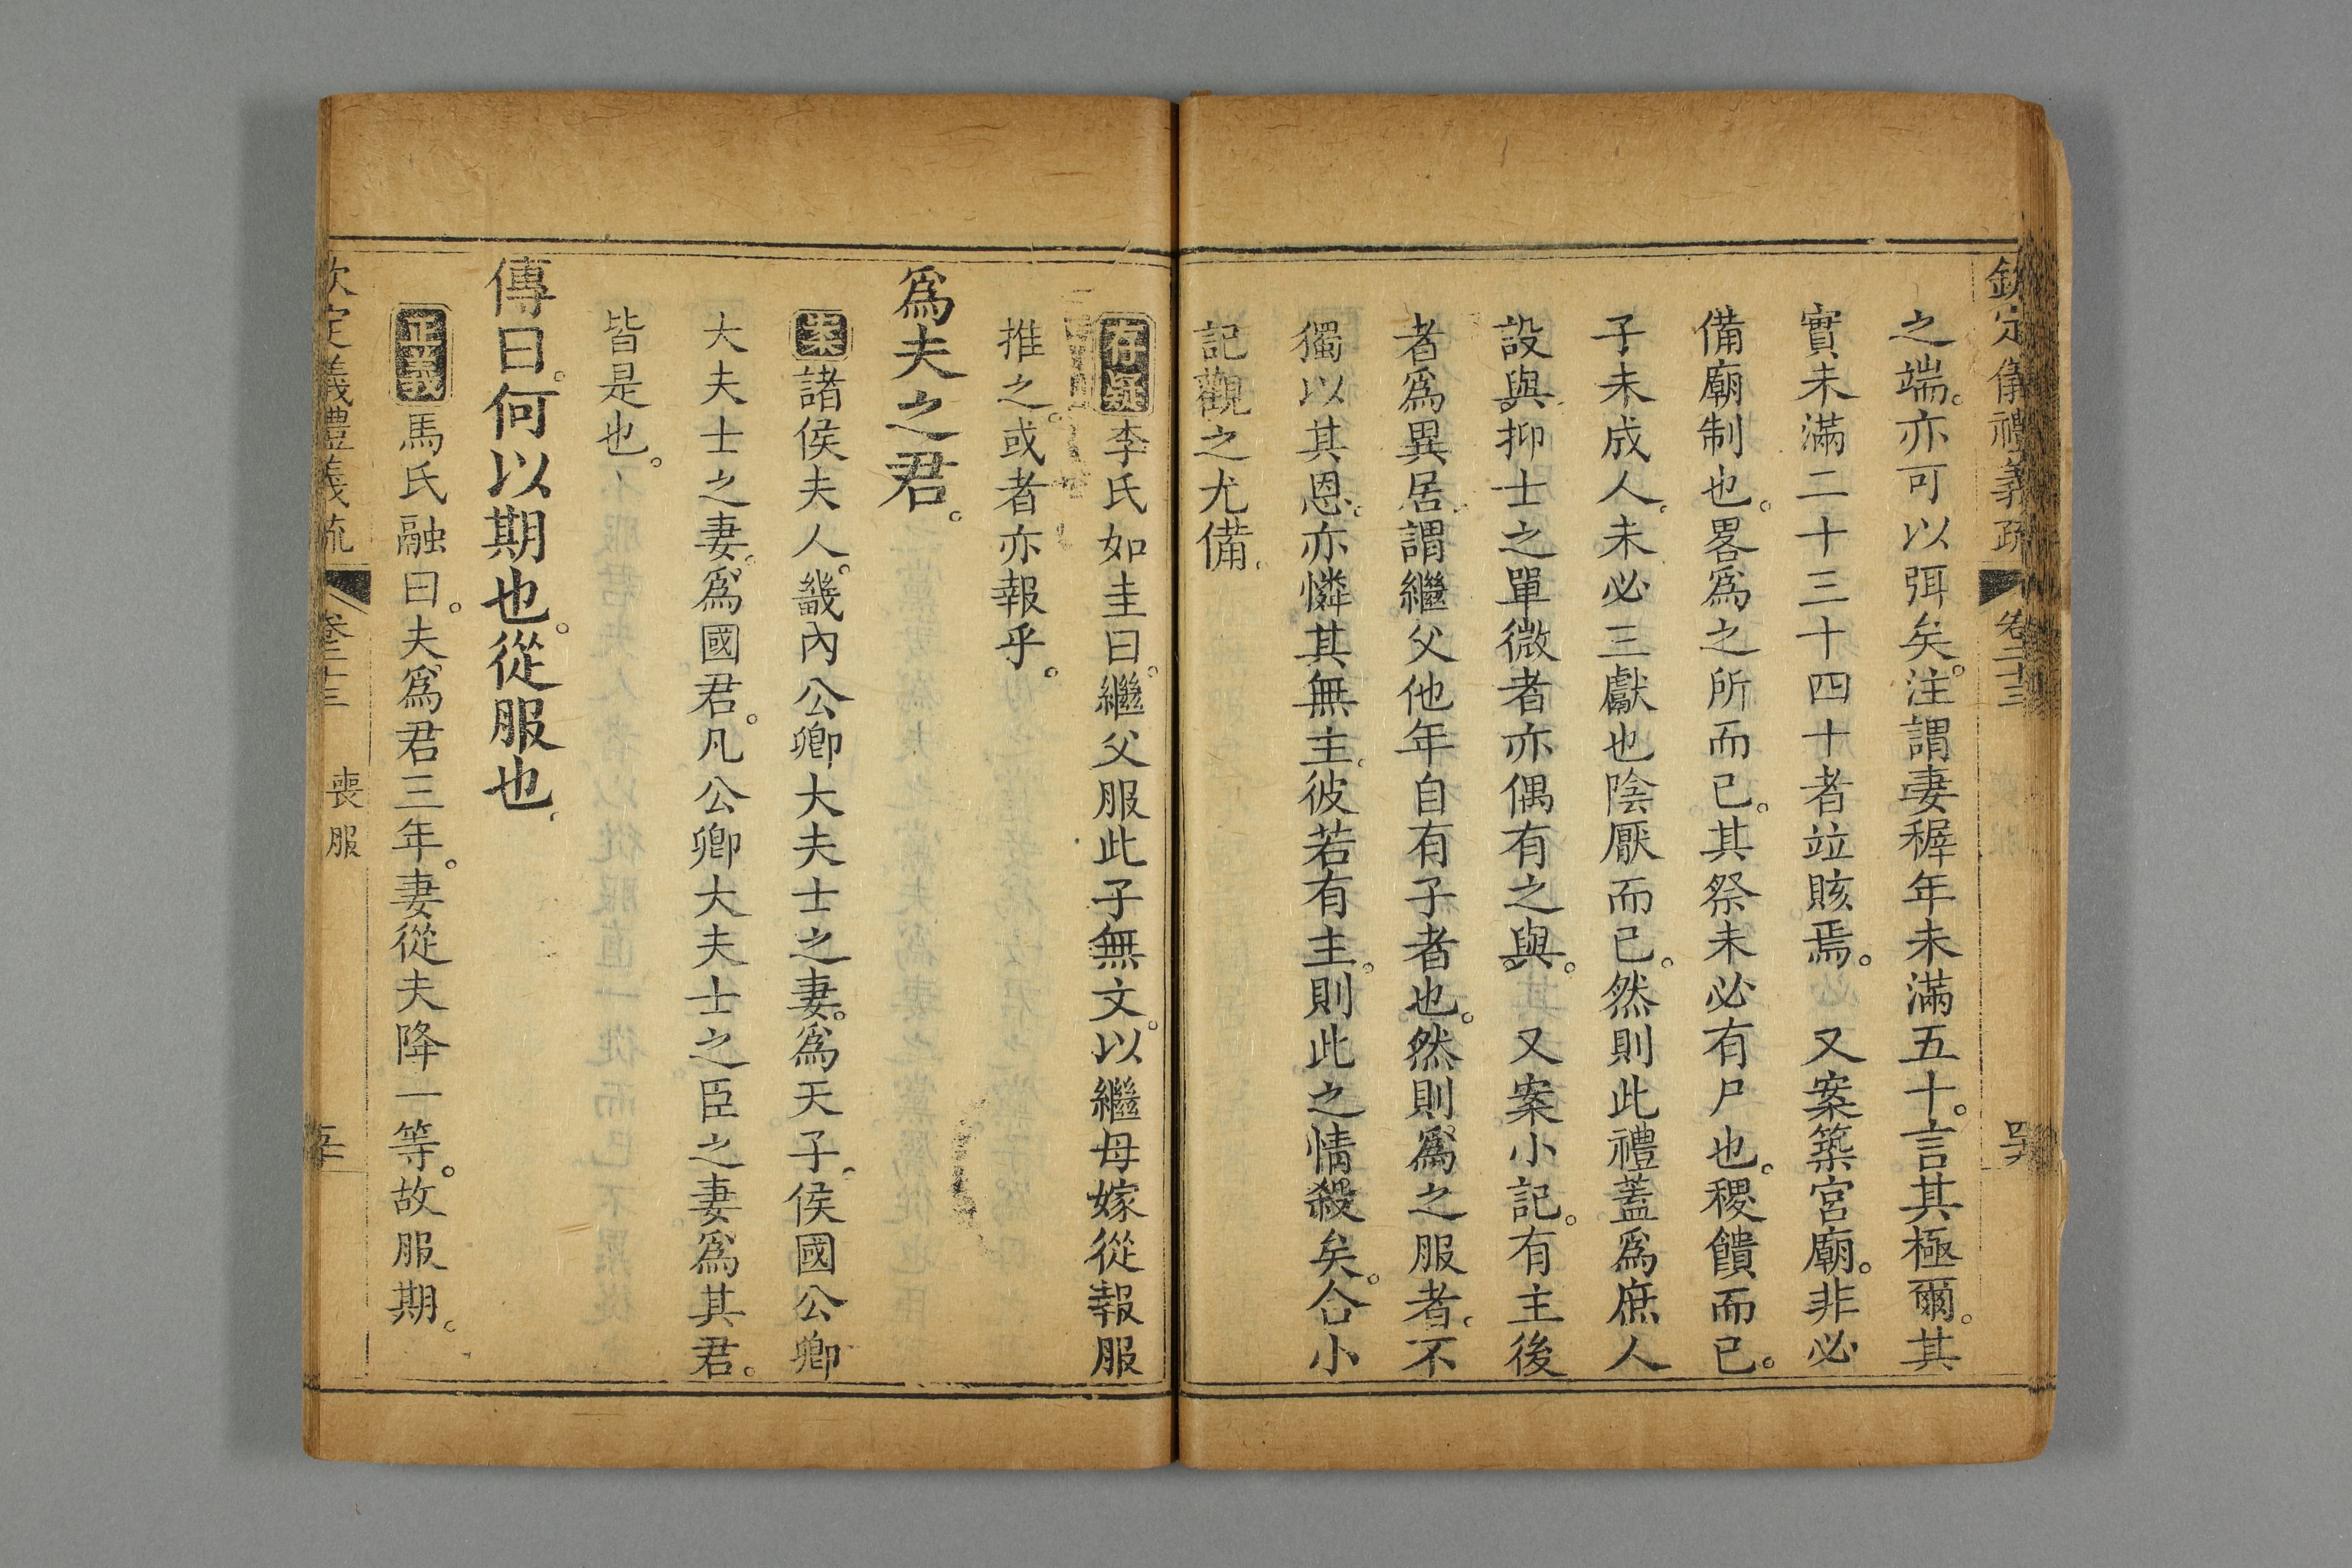 欽定儀禮義疏 卷二十三
之端。亦可以弭矣。注謂妻穉年未滿五十。言其極爾。其
實未滿二十三十四十者竝賅焉。又案築宮廟。非必
備廟制也。畧爲之所而已。其祭未必有尸也。稷饋而已。
子未成人。未必三獻也陰厭而已。然則此禮蓋爲庶人
設與。抑士之單微者亦偶有之與。又案小記。有主後
者爲異居。謂繼父他年自有子者也。然則爲之服者。不
獨以其恩。亦憐其無主。彼若有主。則此之情殺矣。合小
記觀之尤備。
存疑李氏如圭曰。繼父服此子無文。以繼母嫁從報服
推之。或者亦報乎。
爲夫之君。
案諸侯夫人。畿內公卿大夫士之妻。爲天子。侯國公卿
大夫士之妻。爲國君。凡公卿大夫士之臣之妻爲其君。
皆是也。
傳曰。何以期也。從服也。
正義馬氏融曰。夫爲君三年。妻從夫降一等。故服期。
欽定儀禮義疏 卷二十三 喪服